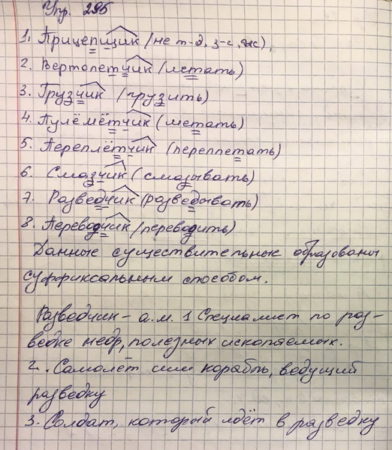 Упр. 295
1. Прицепщик (не т-д, з-с, ж),
2. Вертолетчик (летать)
3. Грузчик (грузить)
4. Пулемётчик (метать)
5. Переплётчик (переплетать)
6. Смазчик (смазывать)
7. Разведчик (разведывать)
8. Переводчик (переводить)
Данные существительные образованы
суффиксальным способом.
Разведчик - а. м. 1 Специалист по раз-
ведке недр, полезных ископаемых.
2. Самолёт или корабль, ведущий
разведку
3. Солдат, который идёт в разведку